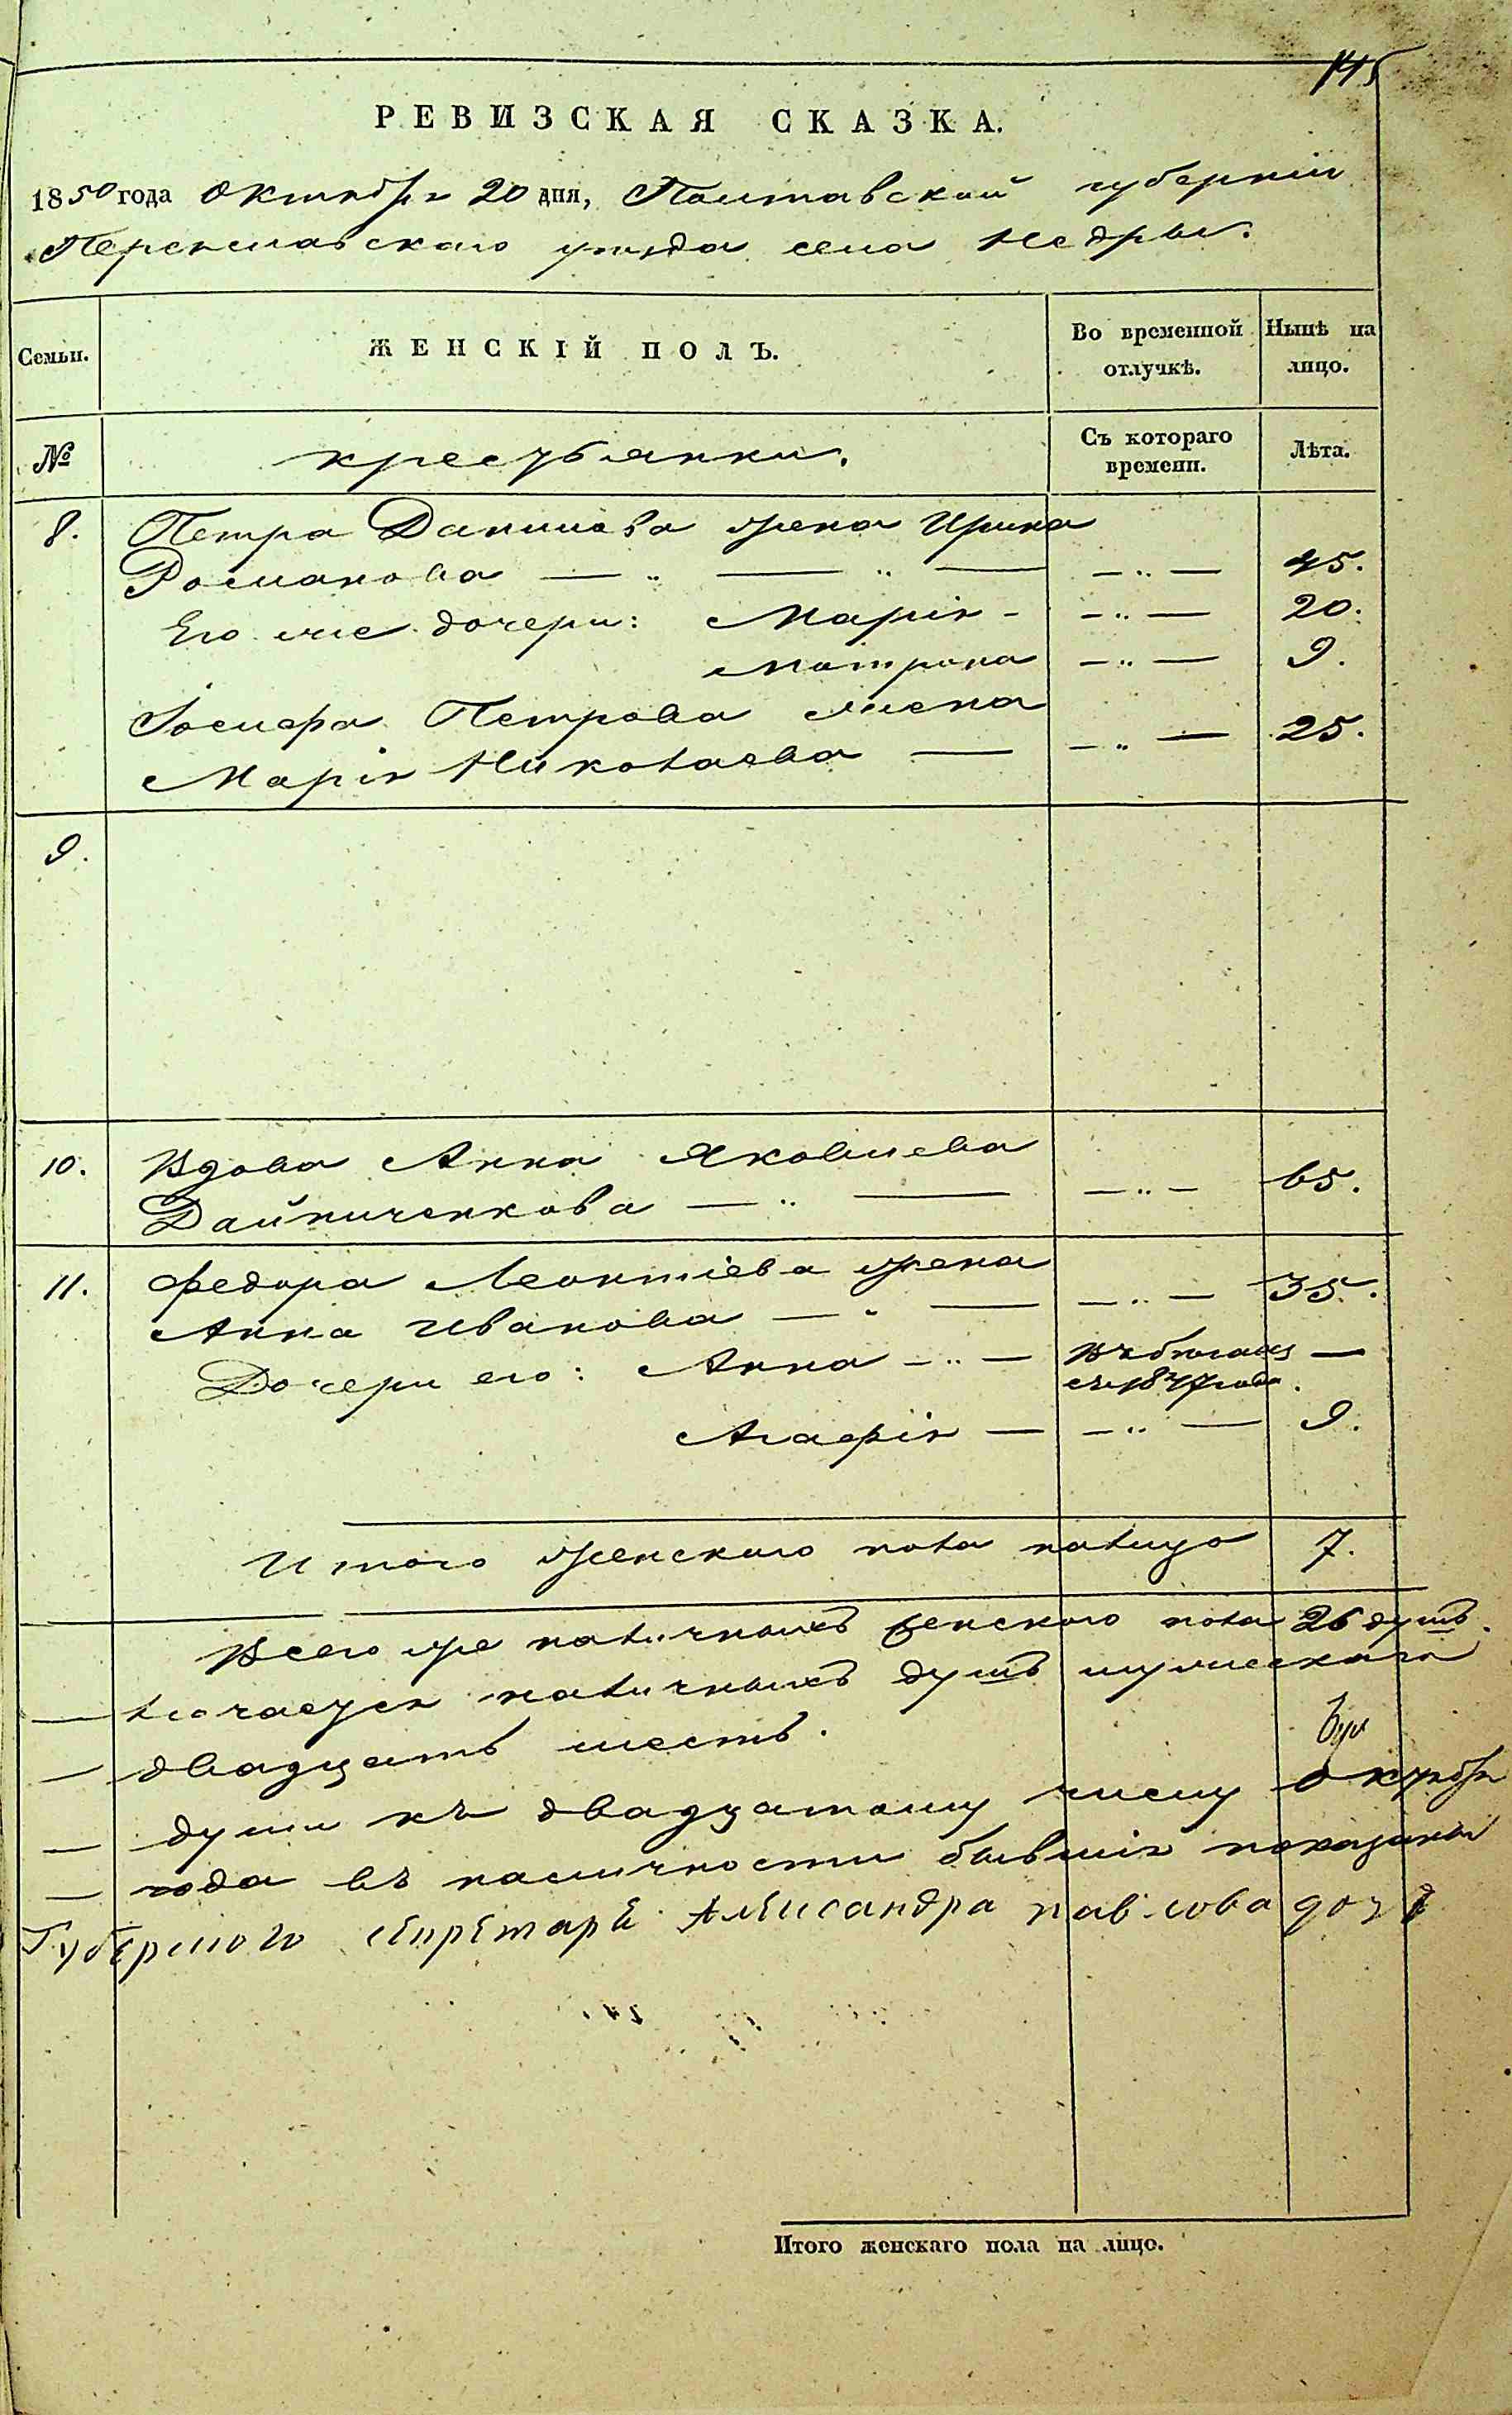 145
РЕВИЗСКАЯ СКАЗКА.
1850 года Октября 20 дня, Полтавской губерніи
Переяславскаго уѣзда села Недры.
Семьи. ЖЕНСКІЙ ПОЛЪ. Во временной отлучкѣ. Нынѣ на лицо.
№ крестьянки. Съ котораго времени. Лѣта.
8. Петра Данилова жена Ирина
Романова — „ — „ — — „ — 45.
Его же дочери: Марія - — „ — 20.
Матрона — „ — 9.
Іосифа Петрова жена
Марія Николаева — — „ — 25.
9.
10. Вдова Анна Яковлева
Дайниченкова — „ — — „ — 65.
11. Федора Леонтіева жена
Анна Иванова — „ — — „ — 35.
Дочери его: Анна — „ — Въ бѣгахъ —
съ 1847 года.
Агафія — — „ — 9.
Итого женскаго пола налицо 7.
Всего же наличныхъ женского пола 26 душъ.
— наличныхъ душъ мужескаго
— двадцать шесть.
— души къ двадцатому числу октября
— года въ наличности бывшія показаны
Губернского секретаря Александра Павлова дочь
Итого женскаго пола на лицо.